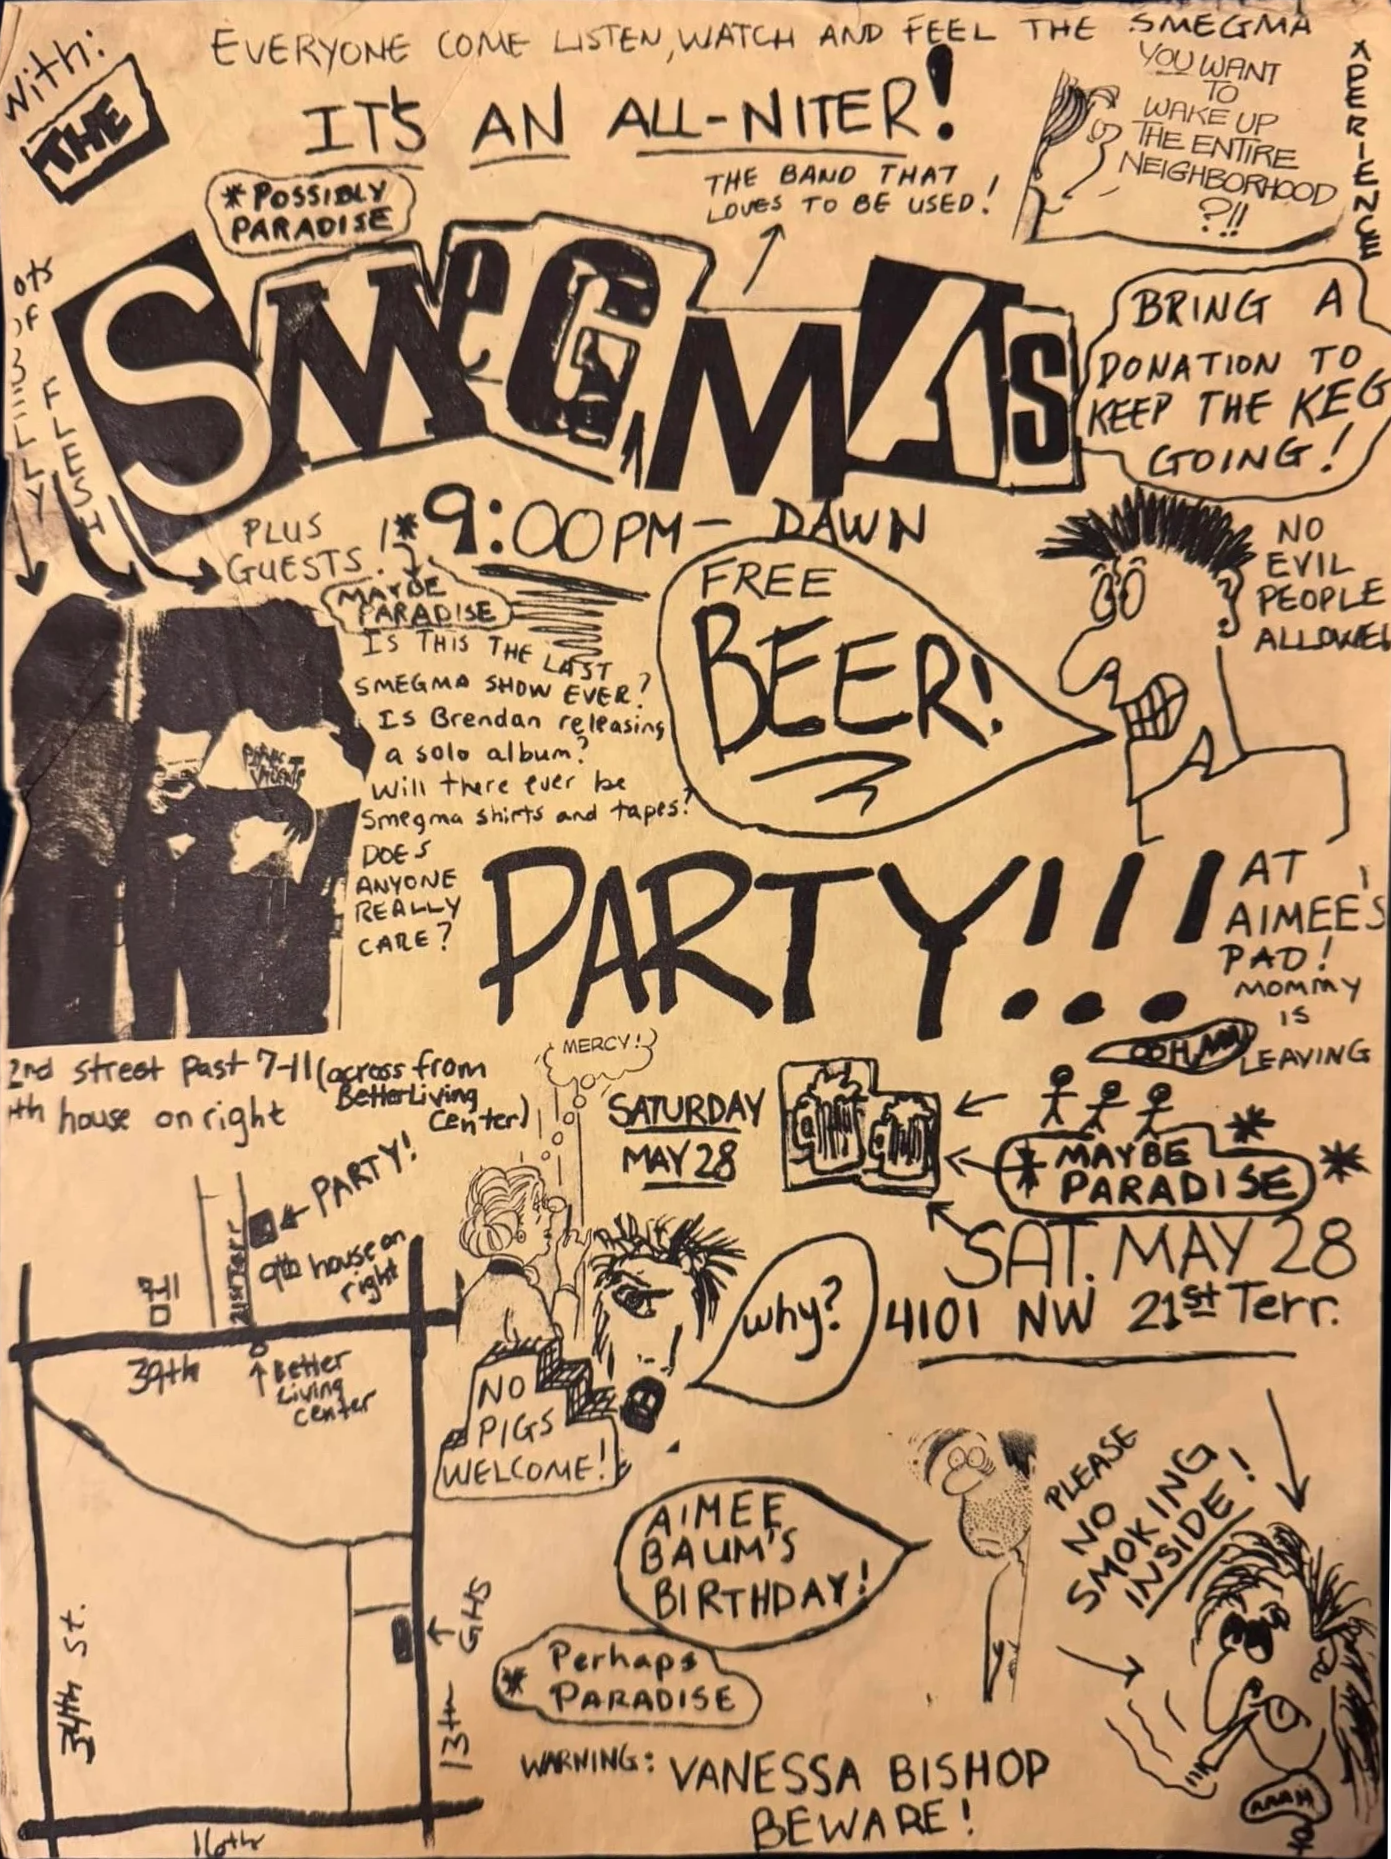 With:
THE
EVERYONE COME LISTEN, WATCH AND FEEL THE SMEGMA
XPERIENCE
IT'S AN ALL-NITER!
YOU WANT
TO
WAKE UP
THE ENTIRE
NEIGHBORHOOD
?!!
* POSSIBLY
PARADISE
THE BAND THAT
LOVES TO BE USED!
SMeGMAs
BRING A
DONATION TO
KEEP THE KEG
GOING!
ots
OF
BELLY
FLESH
PLUS
GUESTS!
*
MAYBE
PARADISE
9:00 PM - DAWN
FREE
BEER!
NO
EVIL
PEOPLE
ALLOWE
IS THIS THE LAST
SMEGMA SHOW EVER?
Is Brendan releasing
a solo album?
Will there ever be
Smegma shirts and tapes?
DOES
ANYONE
REALLY
CARE?
PARTY!!!
AT
AIMEE'S
PAD!
MOMMY
IS
LEAVING
2nd street past 7-11 (across from
Better Living
Center)
th house on right
MERCY!
SATURDAY
MAY 28
* MAYBE
PARADISE
*
*
SAT. MAY 28
4101 NW 21st Terr.
PARTY!
9th house on
right
21st Terr
7-11
39th
Better
Living
Center
34th St.
GHS
13th
16th
NO
PIGS
WELCOME!
why?
AIMEE
BAUM'S
BIRTHDAY!
PLEASE
NO
SMOKING
INSIDE!
* Perhaps
PARADISE
WARNING: VANESSA BISHOP
BEWARE!
AAAH